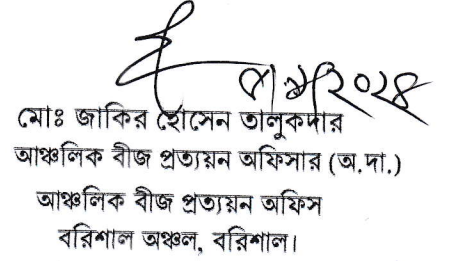 ২০২৪
মোঃ জাকির হোসেন তালুকদার
আঞ্চলিক বীজ প্রত্যয়ন অফিসার (অ.দা.)
আঞ্চলিক বীজ প্রত্যয়ন অফিস
বরিশাল অঞ্চল, বরিশাল।